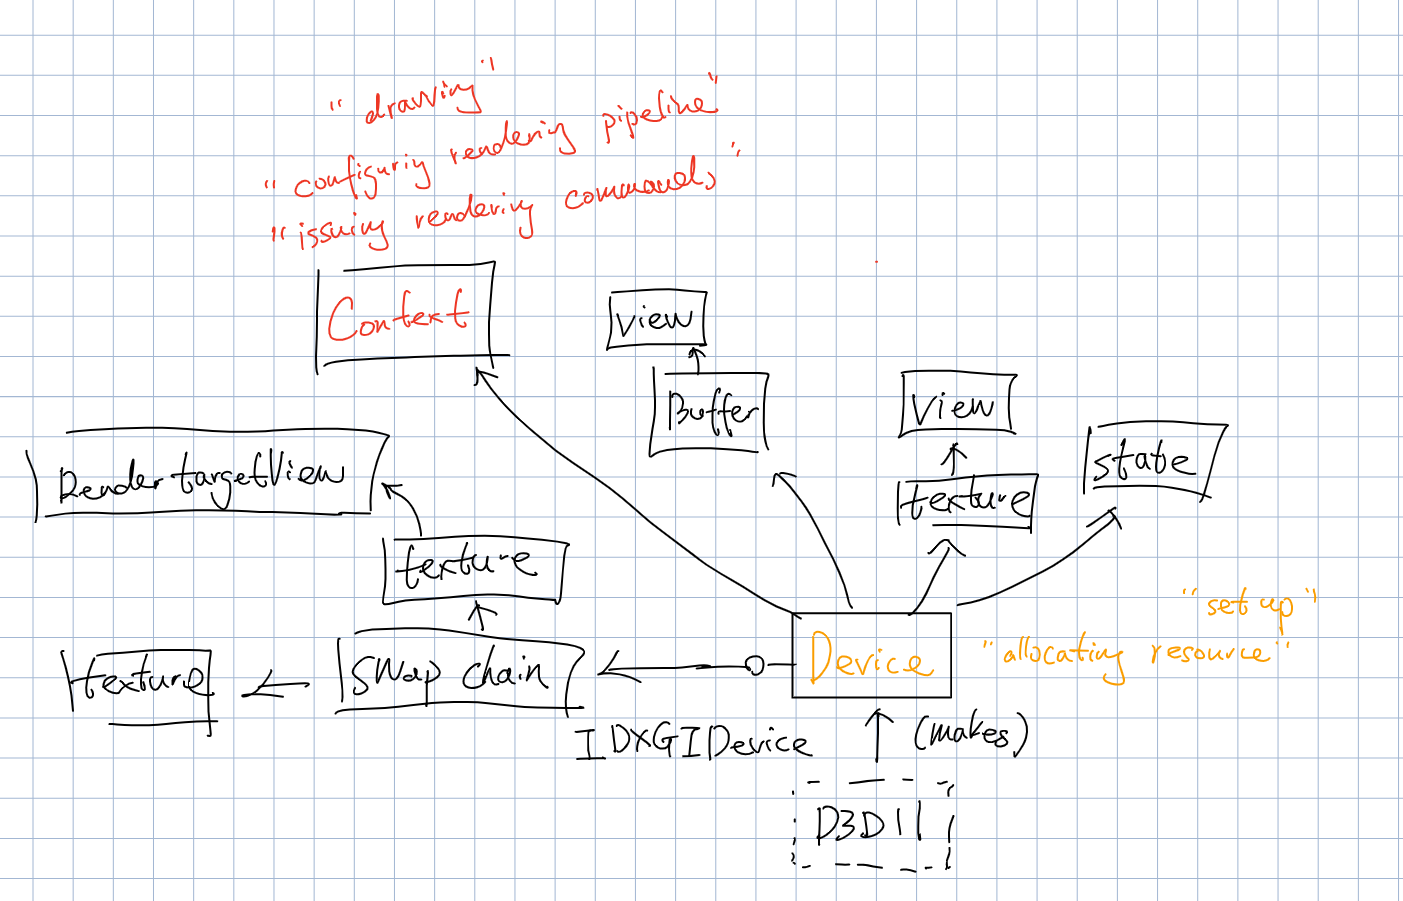 " drawing "
" configuring rendering pipeline "
" issuing rendering commands "
Context
view
Buffer
View
texture
state
RendertargetView
texture
swap chain
texture
Device
"set up"
"allocating resource"
IDXGIDevice
(makes)
D3D11